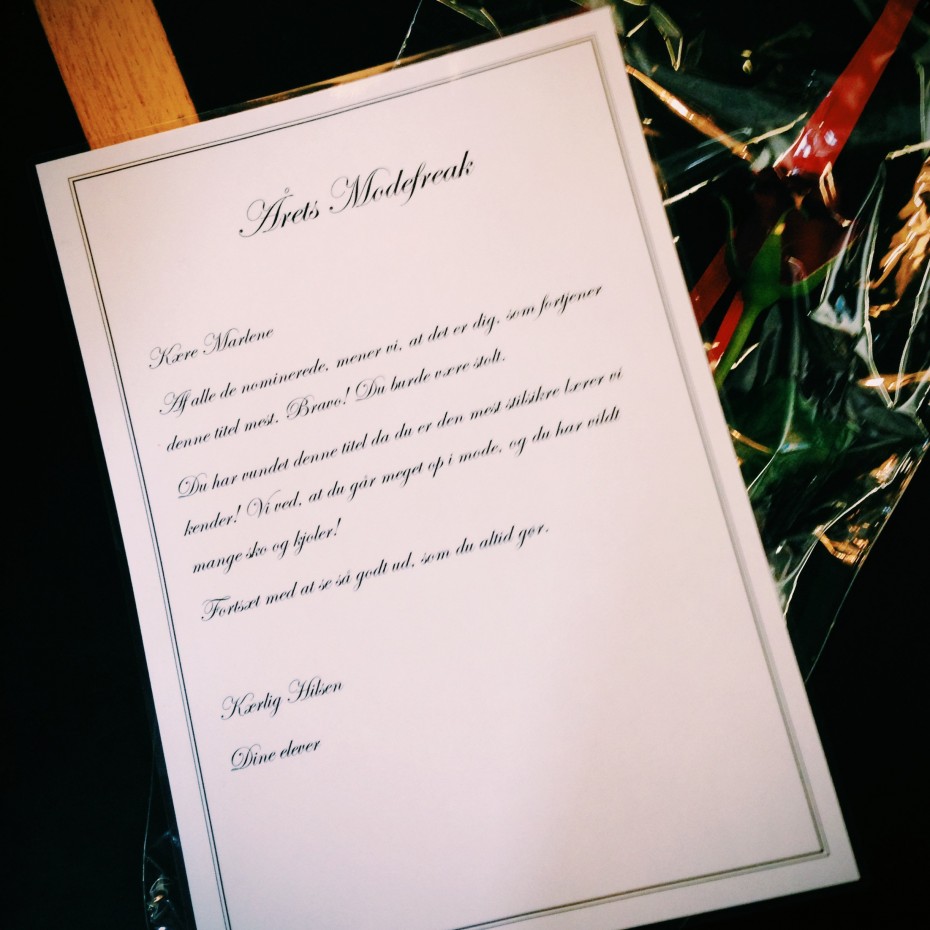 Årets Modefreak
Kære Marlene
Af alle de nominerede, mener vi, at det er dig, som fortjener
denne titel mest. Bravo! Du burde være stolt.
Du har vundet denne titel da du er den mest stilsikre lærer vi
kender! Vi ved, at du går meget op i mode, og du har vildt
mange sko og kjoler!
Fortsæt med at se så godt ud, som du altid gør.
Kærlig Hilsen
Dine elever